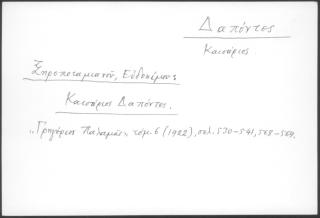 Δαπόντες
Καισάριος
Ξηροποταμιανοῦ, Εὐδοκίμου:
Καισάριος Δαπόντες.
„Γρηγόριος Παλαμᾶς", τόμ. 6 (1922), σελ. 530-541, 558-569.